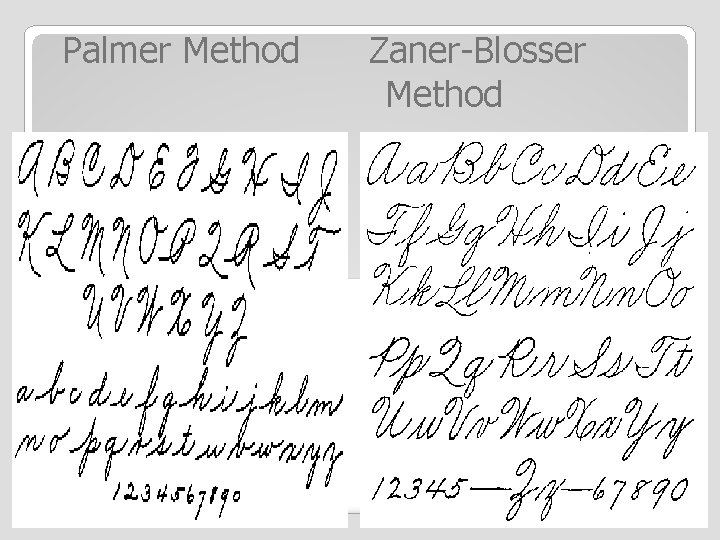 Palmer Method
A B C D E F G H I J
K L M N O P Q R S T
U V W X Y Z
a b c d e f g h i j k l m
n o p q r s t u v w x y z
1 2 3 4 5 6 7 8 9 0
Zaner-Blosser
Method
Aa Bb Cc Dd Ee
Ff Gg Hh Ii Jj
Kk Ll Mm Nn Oo
Pp Qq Rr Ss Tt
Uu Vv Ww Xx Yy
1 2 3 4 5 — Zz — 6 7 8 9 0